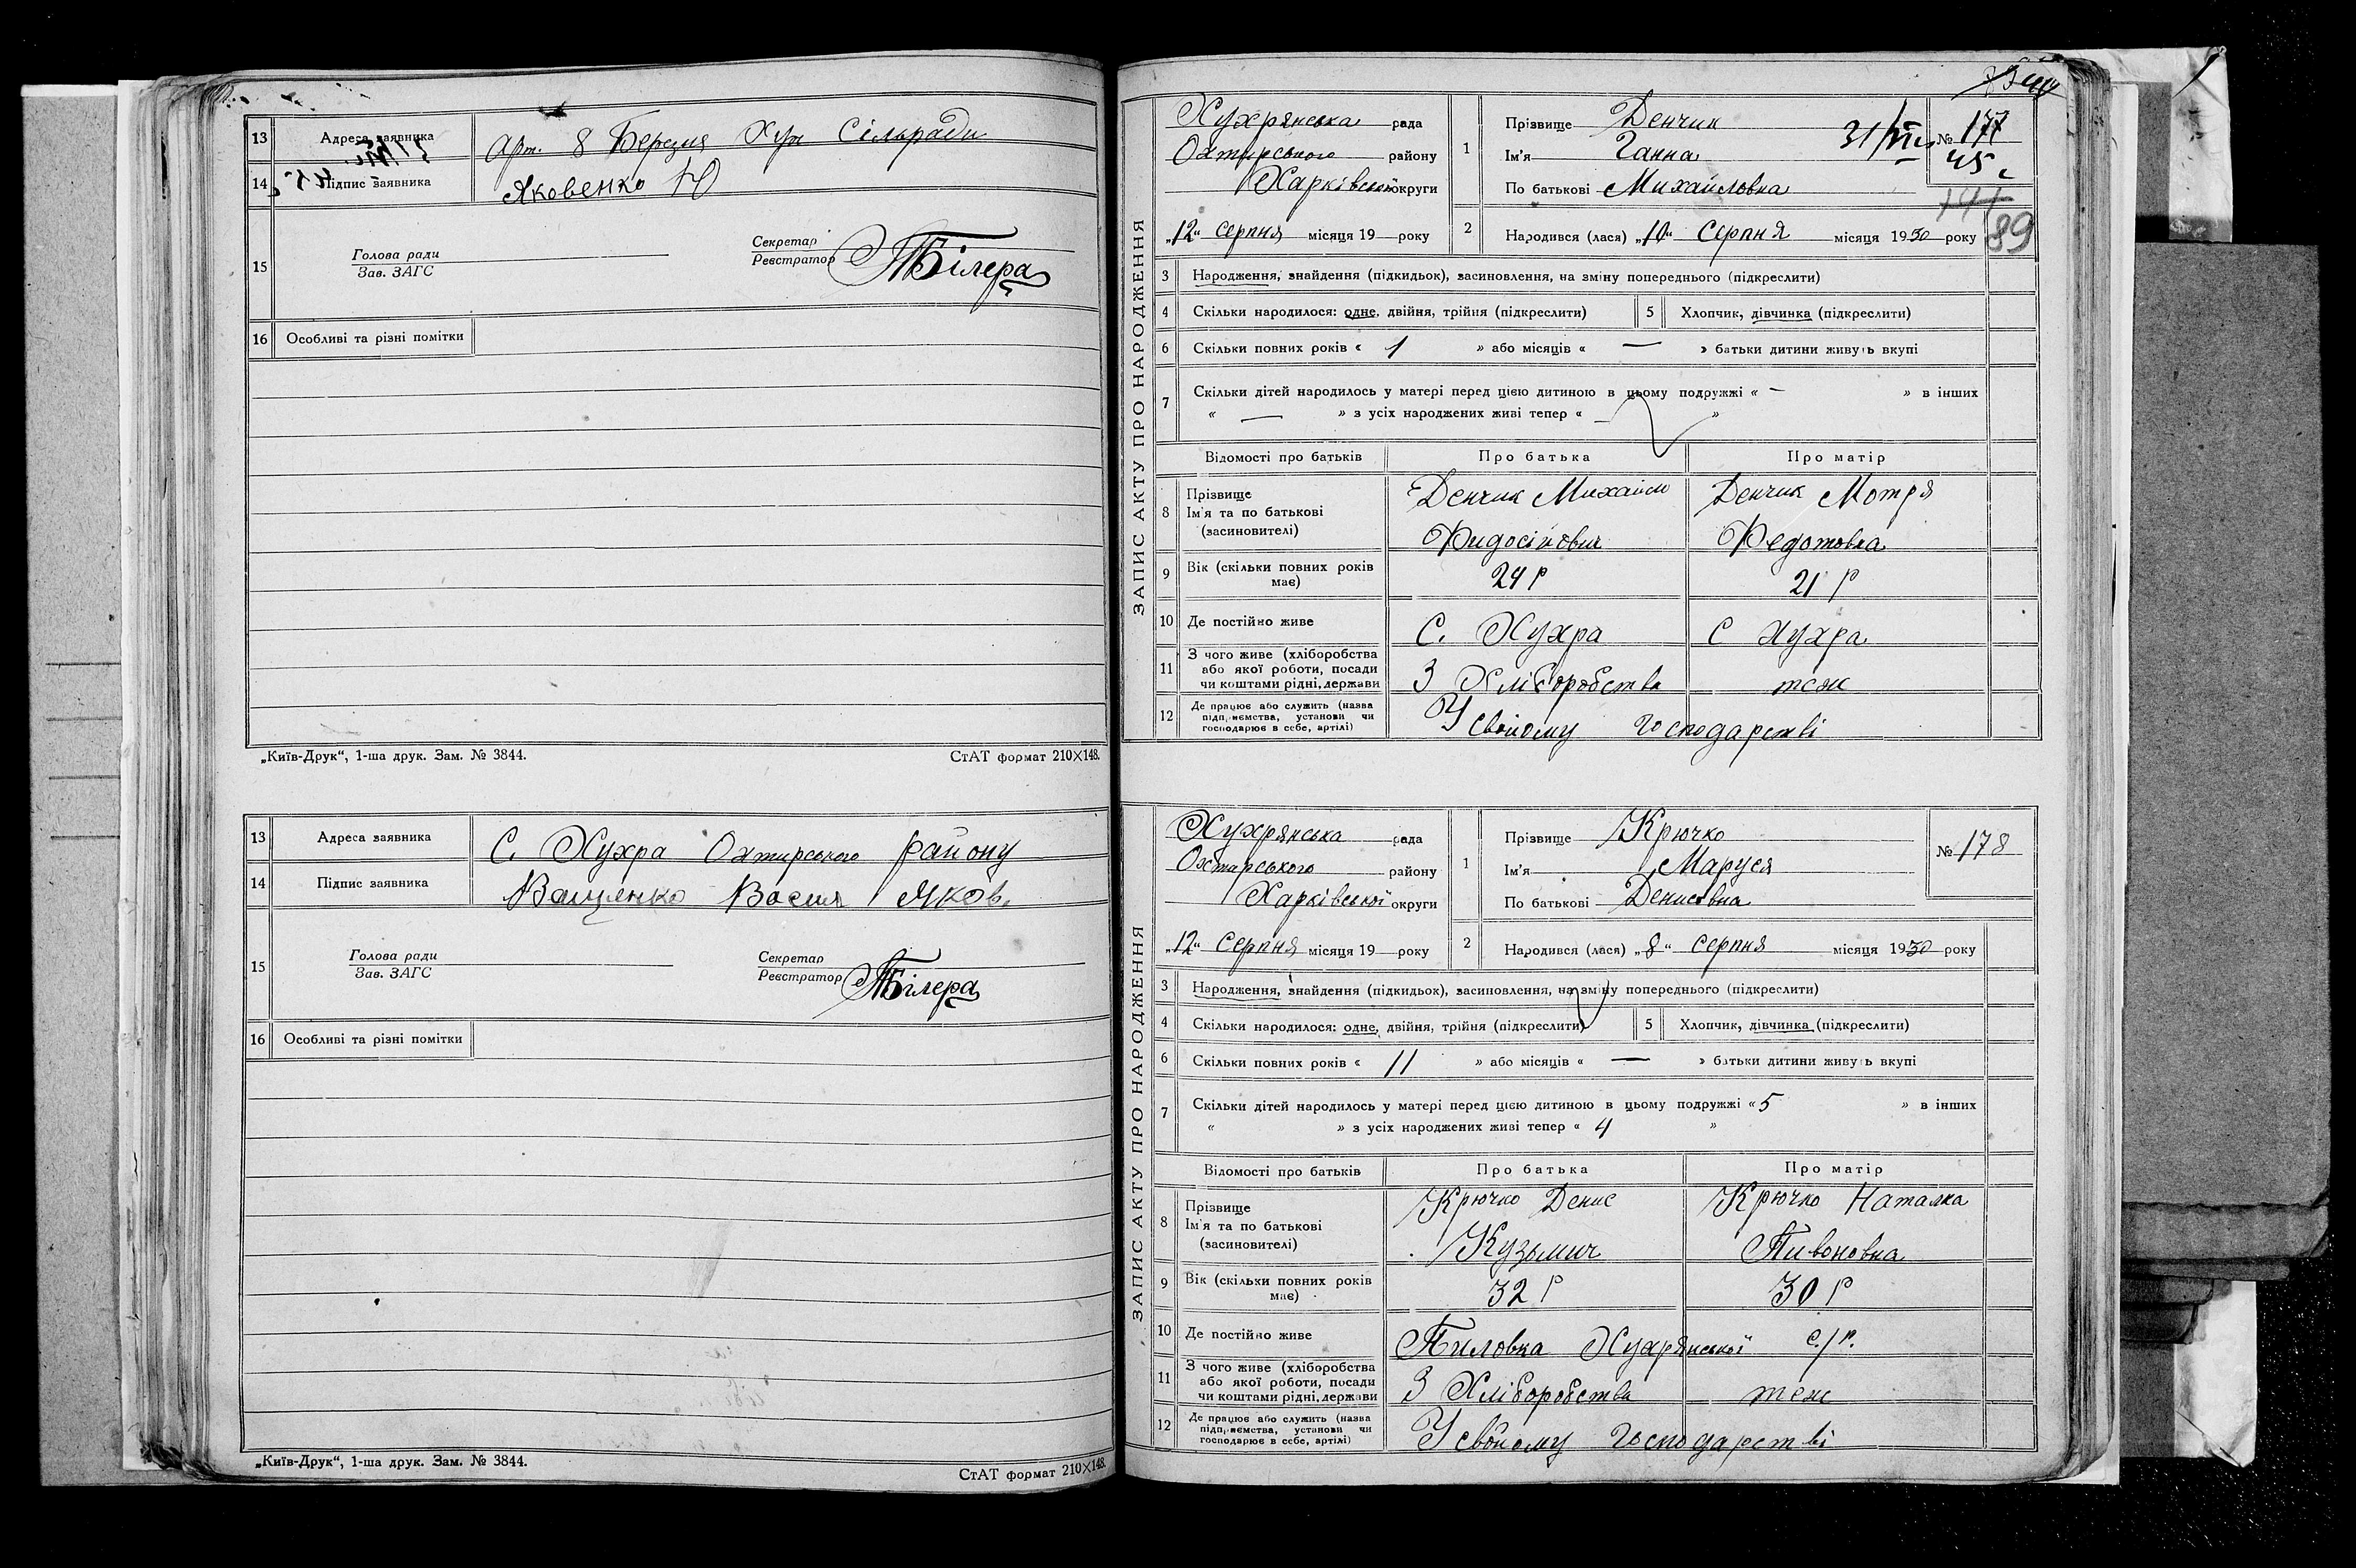 13 Адреса заявника Арт. 8 Березня Хух Сільради
14 Підпис заявника Яковенко Ю
15 Голова ради
Зав. ЗАГС
Секретар
Реєстратор ТБілера
16 Особливі та різні помітки
„Київ-Друк“, 1-ша друк. Зам. № 3844. СтАТ формат 210×148.
13 Адреса заявника С. Хухра Охтирського району
14 Підпис заявника Ващенко Васил Яков.
15 Голова ради
Зав. ЗАГС
Секретар
Реєстратор ТБілера
16 Особливі та різні помітки
„Київ-Друк“, 1-ша друк. Зам. № 3844. СтАТ формат 210×148.
ЗАПИС АКТУ ПРО НАРОДЖЕННЯ
Хухрянська рада
Охтирського району
Харківської округи
„12“ серпня місяця 19 року
1 Прізвище Денчик
Ім'я Ганна
По батькові Михайловна
31/VII
№ 177
45
89
2 Народився (лася) „10“ Серпня місяця 1930 року
3 Народження, знайдення (підкидьок), засиновлення, на зміну попереднього (підкреслити)
4 Скільки народилося: одне, двійня, трійня (підкреслити) 5 Хлопчик, дівчинка (підкреслити)
6 Скільки повних років « 1 » або місяців « — » батьки дитини живуть вкупі
7 Скільки дітей народилось у матері перед цією дитиною в цьому подружжі « — » в інших
« — » з усіх народжених живі тепер « — »
Відомості про батьків Про батька Про матір
8 Прізвище
Ім'я та по батькові
(засиновителі)
Денчик Михайло
Фидосійович
Денчик Мотря
Федотовна
9 Вік (скільки повних років має) 24 р 21 р
10 Де постійно живе С. Хухра С Хухра
11 З чого живе (хліборобства
або якої роботи, посади
чи коштами рідні, держави
З Хліборобства теж
12 Де працює або служить (назва
підприємства, установи чи
господарює в себе, артілі)
У свойому господарстві
ЗАПИС АКТУ ПРО НАРОДЖЕННЯ
Хухрянська рада
Охтирського району
Харківської округи
„12“ серпня місяця 19 року
1 Прізвище Крючко
Ім'я Маруся
По батькові Денисовна
№ 178
2 Народився (лася) „8“ серпня місяця 1930 року
3 Народження, знайдення (підкидьок), засиновлення, на зміну попереднього (підкреслити)
4 Скільки народилося: одне, двійня, трійня (підкреслити) 5 Хлопчик, дівчинка (підкреслити)
6 Скільки повних років « 11 » або місяців « — » батьки дитини живуть вкупі
7 Скільки дітей народилось у матері перед цією дитиною в цьому подружжі « 5 » в інших
« » з усіх народжених живі тепер « 4 »
Відомості про батьків Про батька Про матір
8 Прізвище
Ім'я та по батькові
(засиновителі)
Крючко Денис
Кузьмич
Крючко Наталка
Пивоновна
9 Вік (скільки повних років має) 32 р 30 р
10 Де постійно живе Пиловка Хухрянської с/р.
11 З чого живе (хліборобства
або якої роботи, посади
чи коштами рідні, держави
З Хліборобства теж
12 Де працює або служить (назва
підприємства, установи чи
господарює в себе, артілі)
У свойому господарстві